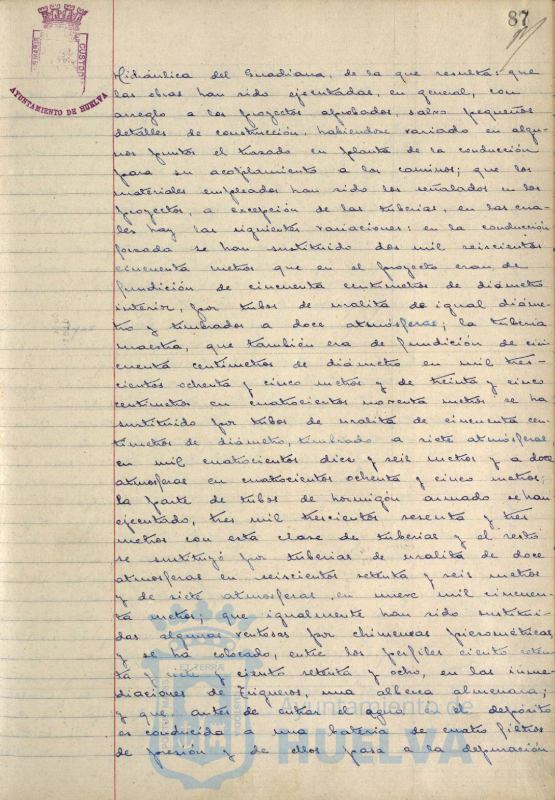 87
AYUNTAMIENTO DE HUELVA
Hidráulica del Guadiana, de la que resulta: que
las obras han sido ejecutadas, en general, con
arreglo a los proyectos aprobados, salvo pequeños
detalles de construcción, habiéndose variado en algu-
nos puntos el trazado en planta de la conducción
para su acoplamiento a los caminos; que los
materiales empleados han sido los señalados en los
proyectos, a excepción de las tuberías, en las cua-
les hay las siguientes variaciones: en la conducción
forzada se han sustituido dos mil seiscientos
cincuenta metros que en el proyecto eran de
fundición de cincuenta centímetros de diámetro
interior, por tubos de uralita de igual diáme-
tro y timbrados a doce atmósferas; la tubería
maestra, que también era de fundición de cin-
cuenta centímetros de diámetro en mil tres-
cientos ochenta y cinco metros y de treinta y cinco
centímetros en cuatrocientos noventa metros se ha
sustituido por tubos de uralita de cincuenta cen-
tímetros de diámetro, timbrado a siete atmósferas
en mil cuatrocientos diez y seis metros y a doce
atmósferas en cuatrocientos ochenta y cinco metros;
la parte de tubos de hormigón armado se han
ejecutado, tres mil trescientos sesenta y tres
metros con esta clase de tuberías y el resto
se sustituyó por tuberías de uralita de doce
atmósferas en seiscientos setenta y seis metros
y de siete atmósferas en nueve mil cincuen-
ta metros; que igualmente han sido sustitui-
das algunas ventosas por chimeneas piezométricas
y se ha colocado, entre los perfiles ciento seten-
ta y y ciento setenta y ocho, en las inme-
diaciones de Trigueros, una alberca almenara;
y que antes de entrar el agua en el depósito
es conducida a una batería de cuatro filtros
de presión y de ellos pasa a la depuración
Ayuntamiento de
HUELVA